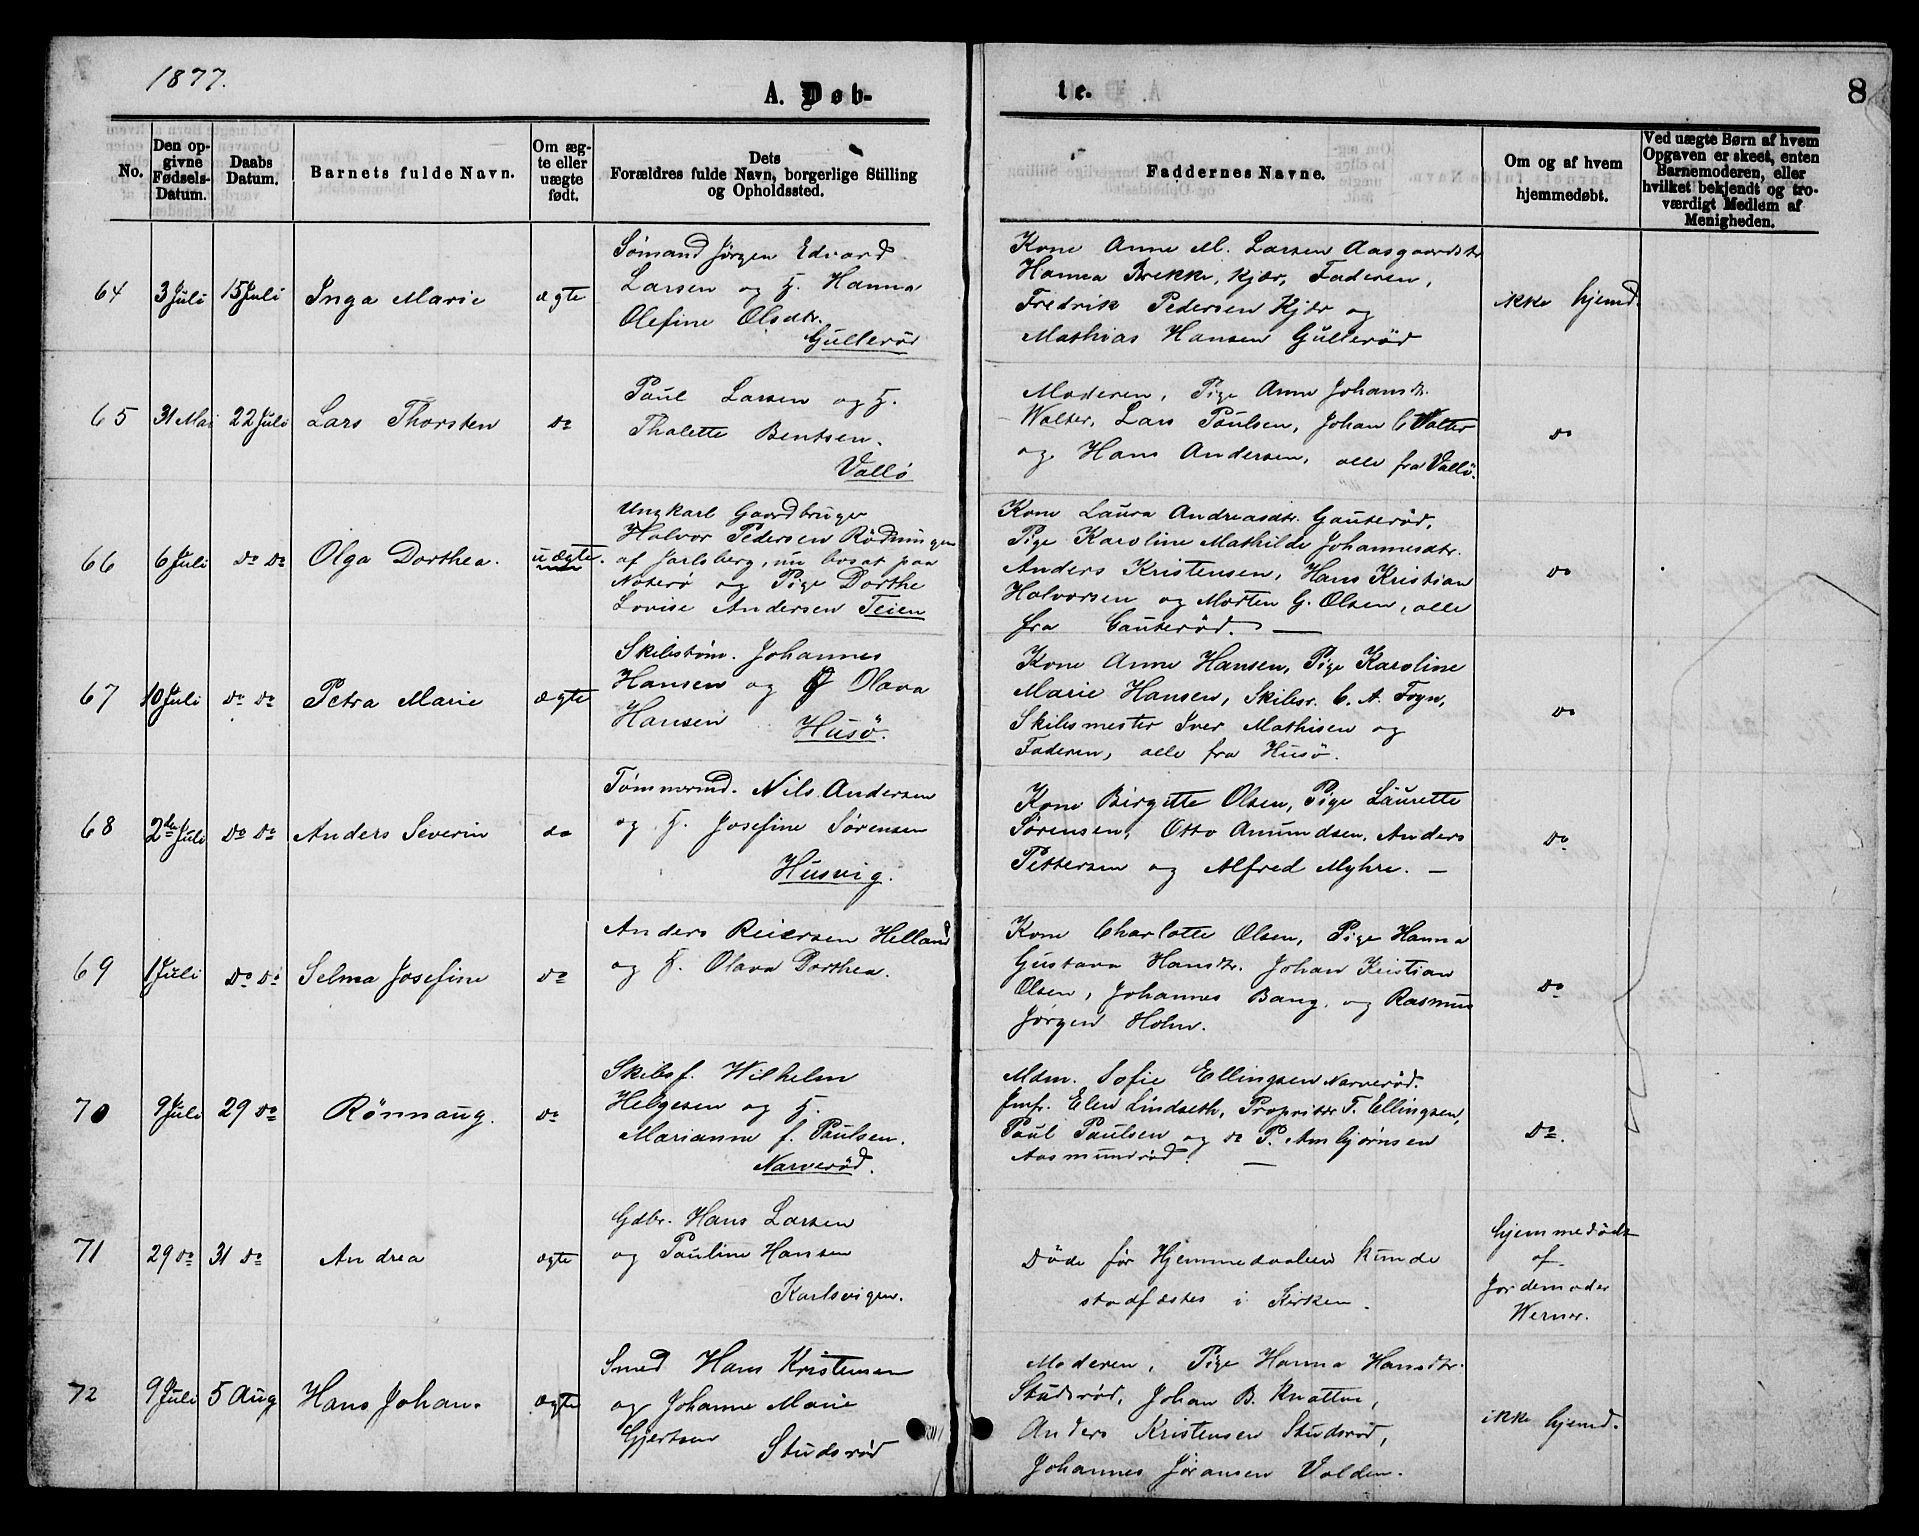 1877.
A. Døb-
te.
8
No.
Den op-
givne
Fødsels-
Datum.
Daabs
Datum.
Barnets fulde Navn.
Om æg-
te eller
uægte
født.
Dets
Forældres fulde Navn, borgerlige Stilling
og Opholdssted.
Faddernes Navne.
Om og af hvem
hjemmedøbt.
Ved uægte Børn af hvem
Opgaven er skeet, enten
Barnemoderen, eller
hvilket bekjendt og tro-
værdigt Medlem af
Menigheden.
64 3 Juli 15 Juli Inga Marie ægte
Sømand Jørgen Edvard
Larsen og H. Hanna
Olefine Olsdtr.
Gullerød
Kone Anne M. Larsen
Hanna Brekke, Kjær, Faderen,
Fredrik Pedersen Kjær og
Mathias Hansen Gullerød
ikke hjemd.
65 31 Mai 22 Juli Lars Thorsten do
Paul Larsen og H.
Thalette Bentsen.
Vallö
Moderen, Pige Anne Johansdtr.
Walter, Lars Paulsen, Johan C Walter
og Hans Andersen, alle fra Vallö.
do
66 6 Juli do do Olga Dorthea. uægte.
Ungkarl Gaardbruger
Halvor Pedersen Rödningen
af Jarlsberg, nu bosat paa
Noterø og Pige Dorthe
Lovise Andersen Teien
Kone Laura Andreasdtr. Gauterød,
Pige Karoline Mathilde Johannesdtr.
Anders Kristensen, Hans Kristian
Halvorsen og Morten G. Olsen, alle
fra Gauterød. —
do
67 10 Juli do do Petra Marie ægte
Skibstøm. Johannes
Hansen og H Olava
Hansen Husö.
Kone Anne Hansen, Pige Karoline
Marie Hansen, Skibsr. C. A. Fogn,
Skibsmester Iver Mathisen og
Faderen, alle fra Husö.
do
68 2de Juli do do Anders Severin do
Tømmermd. Nils Andersen
og H. Josefine Sørensen
Husvig.
Kone Birgitte Olsen, Pige Laurette
Sørensen, Otto Amundsen, Anders
Pettersen og Alfred Myhre. —
do
69 1 Juli do do Selma Josefine do
Anders Reiersen Helland
og H. Olava Dorthea.
Kone Charlotte Olsen, Pige Hanna
Gustava Hansdtr. Johan Kristian
Olsen, Johannes Bang, og Rasmus
Jørgen Holm.
do
70 9 Juli 29 do Rönnaug. do
Skibsf. Wilhelm
Helgesen og H.
Marianne f. Paulsen.
Narverød.
Mdm. Sofie Ellingsen Narverød.
Jmf. Elen Lindseth, Propritær T. Ellingsen,
Paul Paulsen og do P. Ambjørnsen
Aasmundrød. —
do.
71 29 do 31 do Andrea ægte
Gdbr. Hans Larsen
og Pauline Hansen
Karlsvigen.
Døde før Hjemmedaaben kunde
stadfæstes i Kirken.
hjemmedöbt
af
Jordemoder
Werner.
72 9 Juli 5 Aug Hans Johan. ægte
Smed Hans Kristensen
og Johanne Marie
Gjertsen Studsrød
Moderen, Pige Hanna Hansdtr.
Studsrød, Johan B. Knatten,
Anders Kristensen Studsrød,
Johannes Jøransen Valden.
ikke hjemd.